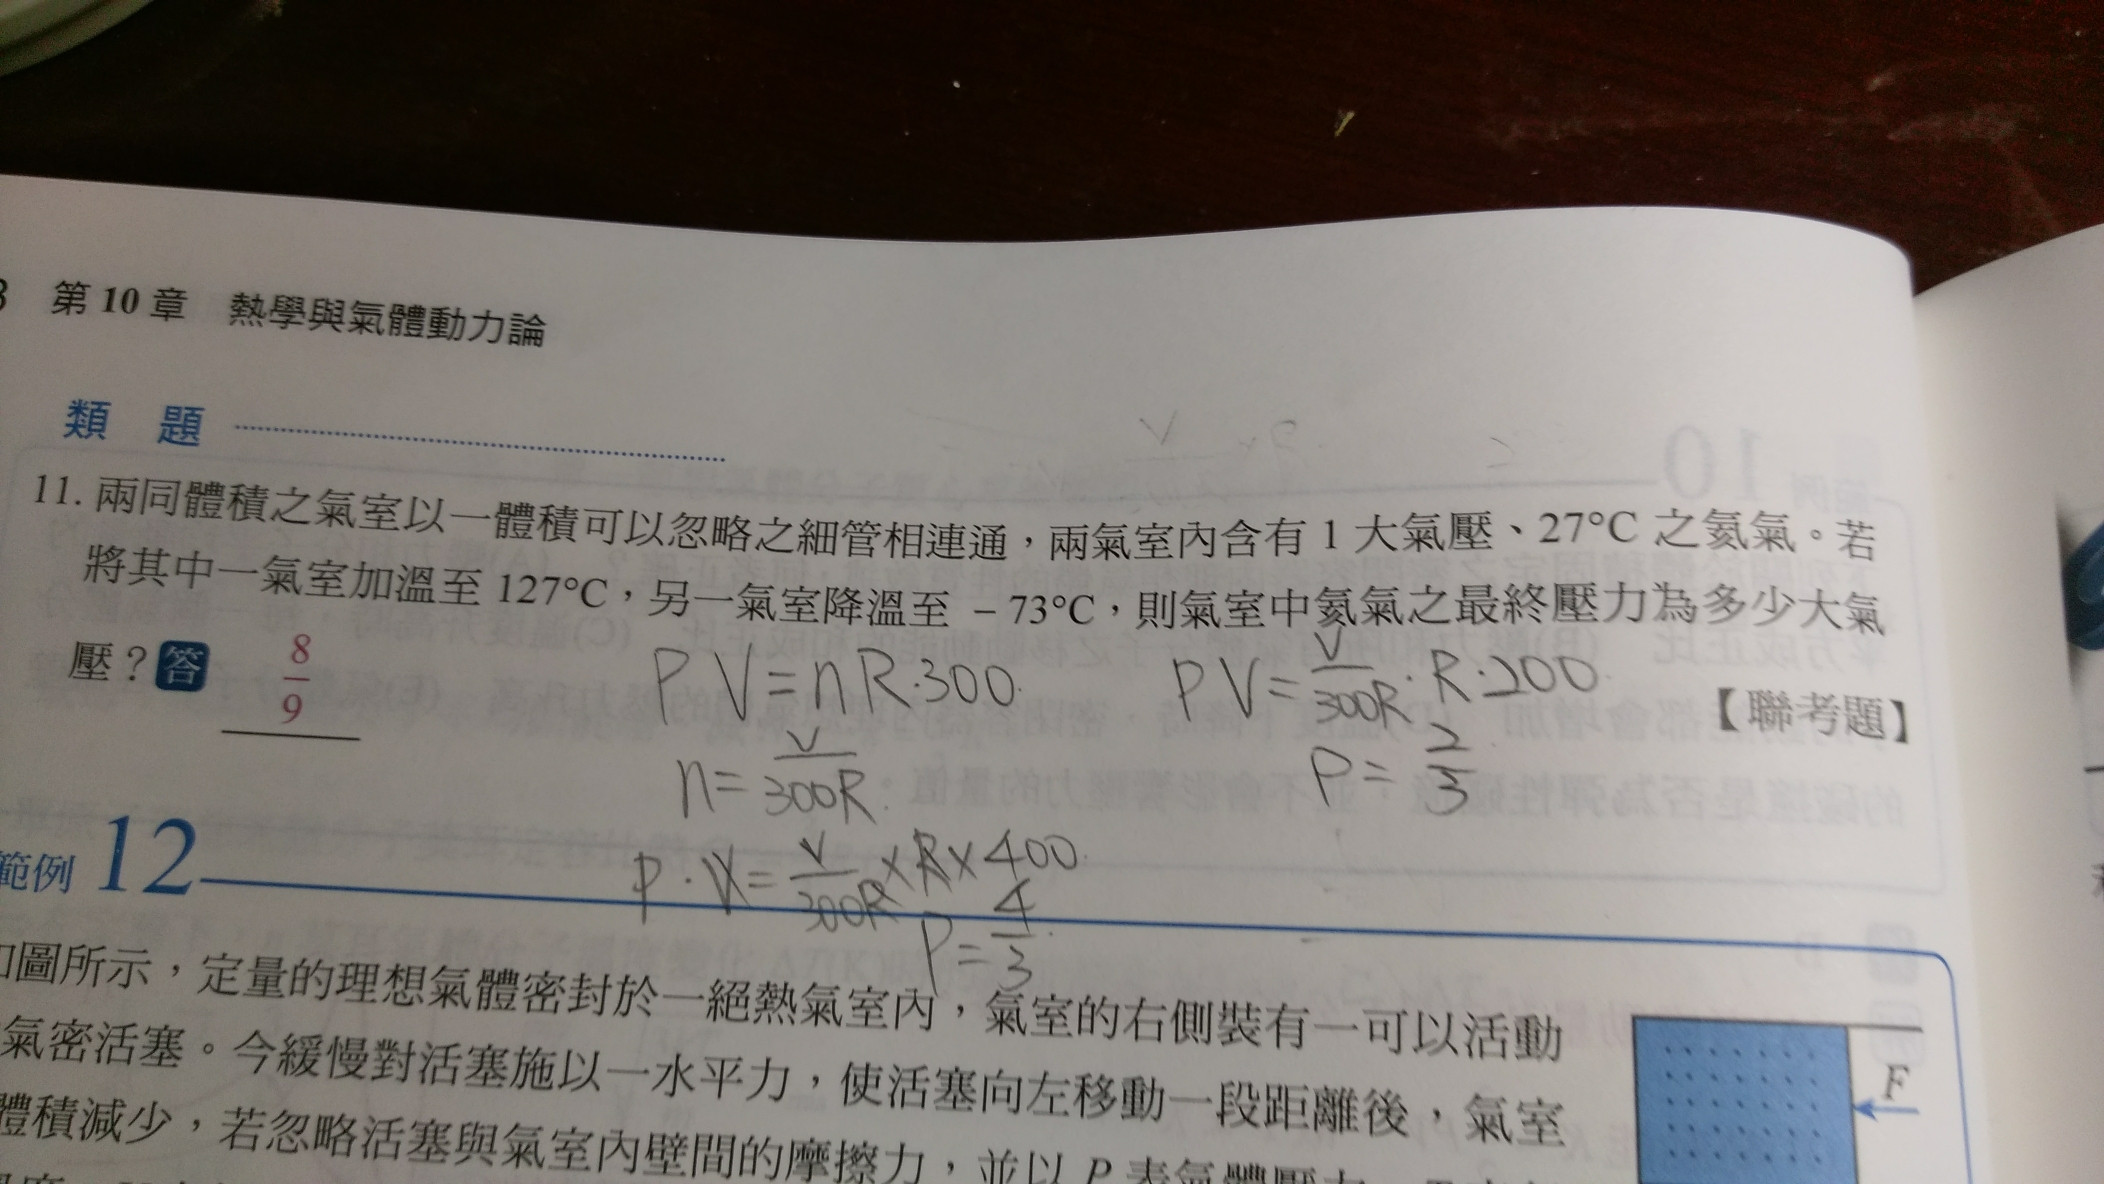 第 10 章 熱學與氣體動力論
類 題
11. 兩同體積之氣室以一體積可以忽略之細管相連通，兩氣室內含有 1 大氣壓、27°C 之氦氣。若
將其中一氣室加溫至 127°C，另一氣室降溫至 －73°C，則氣室中氦氣之最終壓力為多少大氣
壓？答 8/9
【聯考題】
PV=nR·300
n=V/300R
P·V=V/300R×R×400
P=4/3
PV=V/300R·R·200
P=2/3
範例 12
如圖所示，定量的理想氣體密封於一絕熱氣室內，氣室的右側裝有一可以活動
氣密活塞。今緩慢對活塞施以一水平力，使活塞向左移動一段距離後，氣室
體積減少，若忽略活塞與氣室內壁間的摩擦力，並以 P 表氣體壓力
F